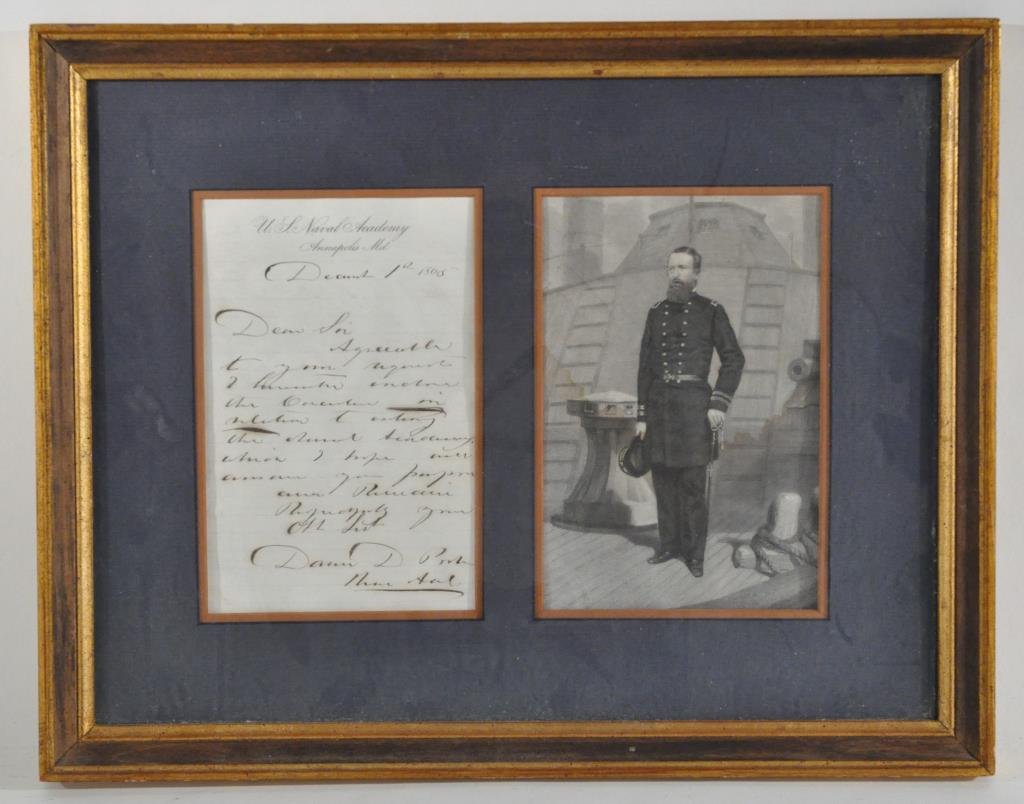 U. S. Naval Academy
Annapolis Md
1st 1865
Dear Sir
Agreeable
to your request
I enclose
the Circular in
relation to
the Naval Academy,
which I hope will
answer your purpose
and Remain
Respectfully your
Obt Svt
David D Porter
Rear Adl